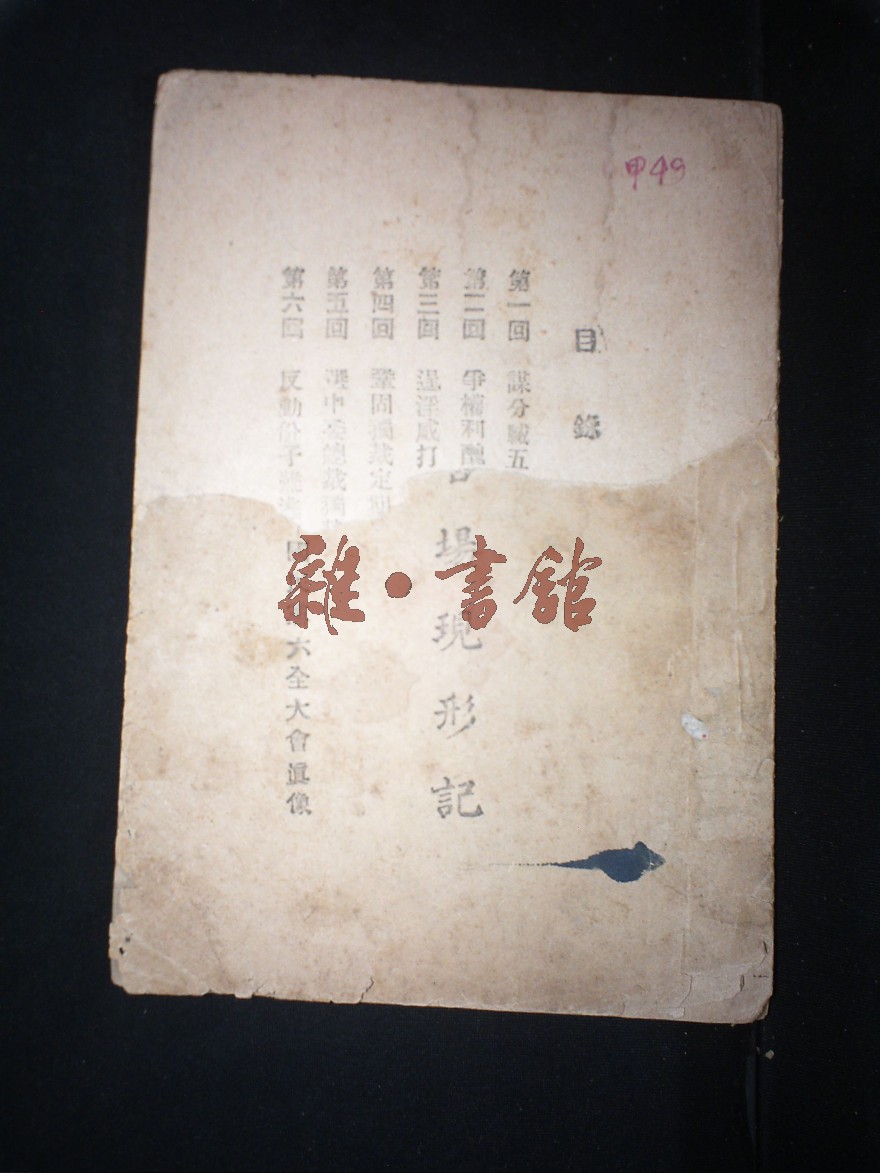 甲49
目錄
第一回 謀分贓五
第二回 爭權利醜
第三回 逞淫威打
第四回 鞏固獨裁定
第五回 選中委總裁獨
第六回 反動份子 六全大會眞像
場現形記
雜·書館